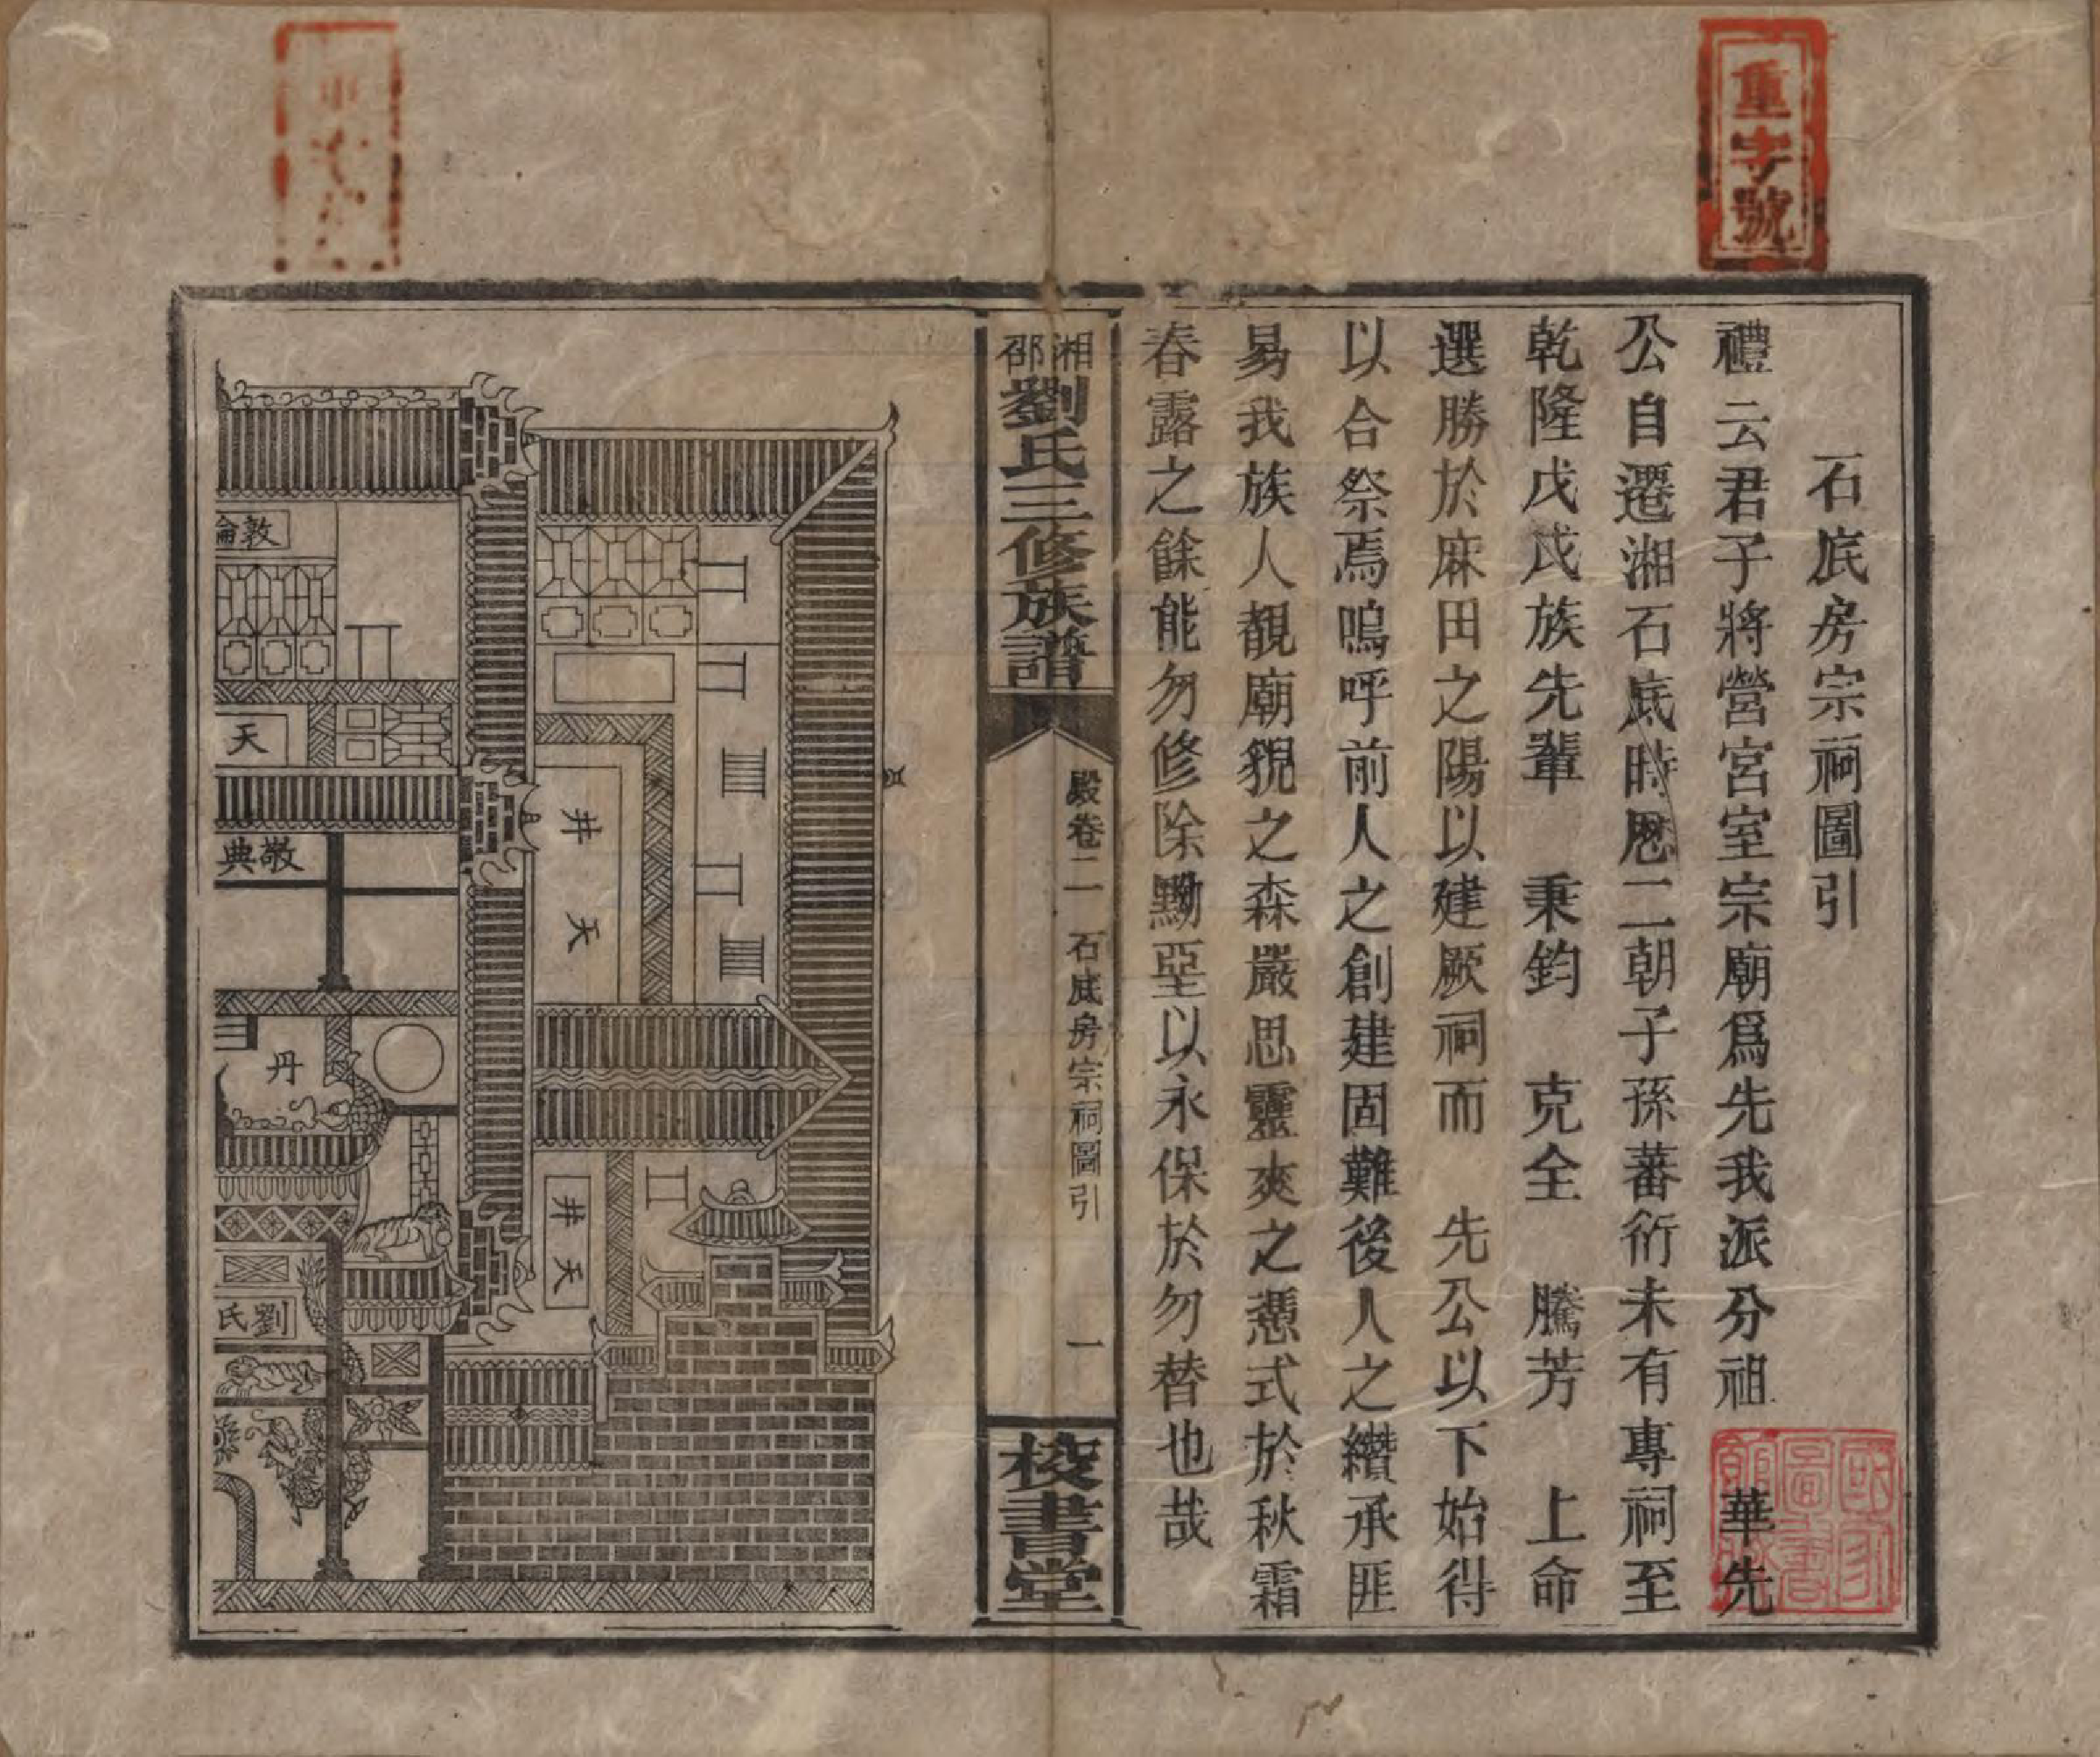 重字號
石底房宗祠圖引
禮云君子將營宮室宗廟爲先我派分祖華先
公自遷湘石底時愿二朝子孫蕃衍未有專祠至
乾隆戊戌族先輩 秉鈞 克全 騰芳 上命
選勝於麻田之陽以建厥祠而 先公以下始得
以合祭焉嗚呼前人之創建固難後人之纘承匪
易我族人覩廟貌之森嚴思靈爽之憑式於秋霜
春露之餘能勿修除黝堊以永保於勿替也哉
國家圖書館
湘邵劉氏三修族譜
殿卷二 石底房宗祠圖引 一
校書堂
敦倫
天
敬典
丹
劉氏
天井
天井